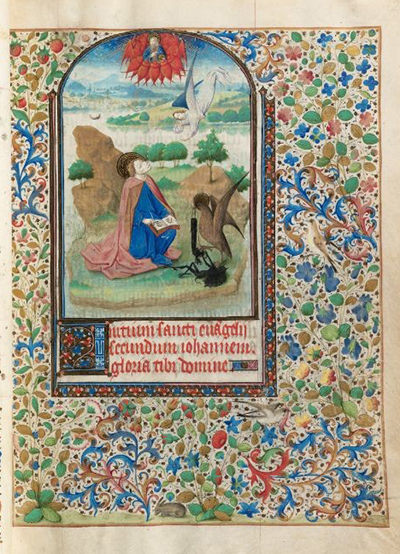 Inicium sancti euāgelii
secundum iohannem.
gloria tibi domine